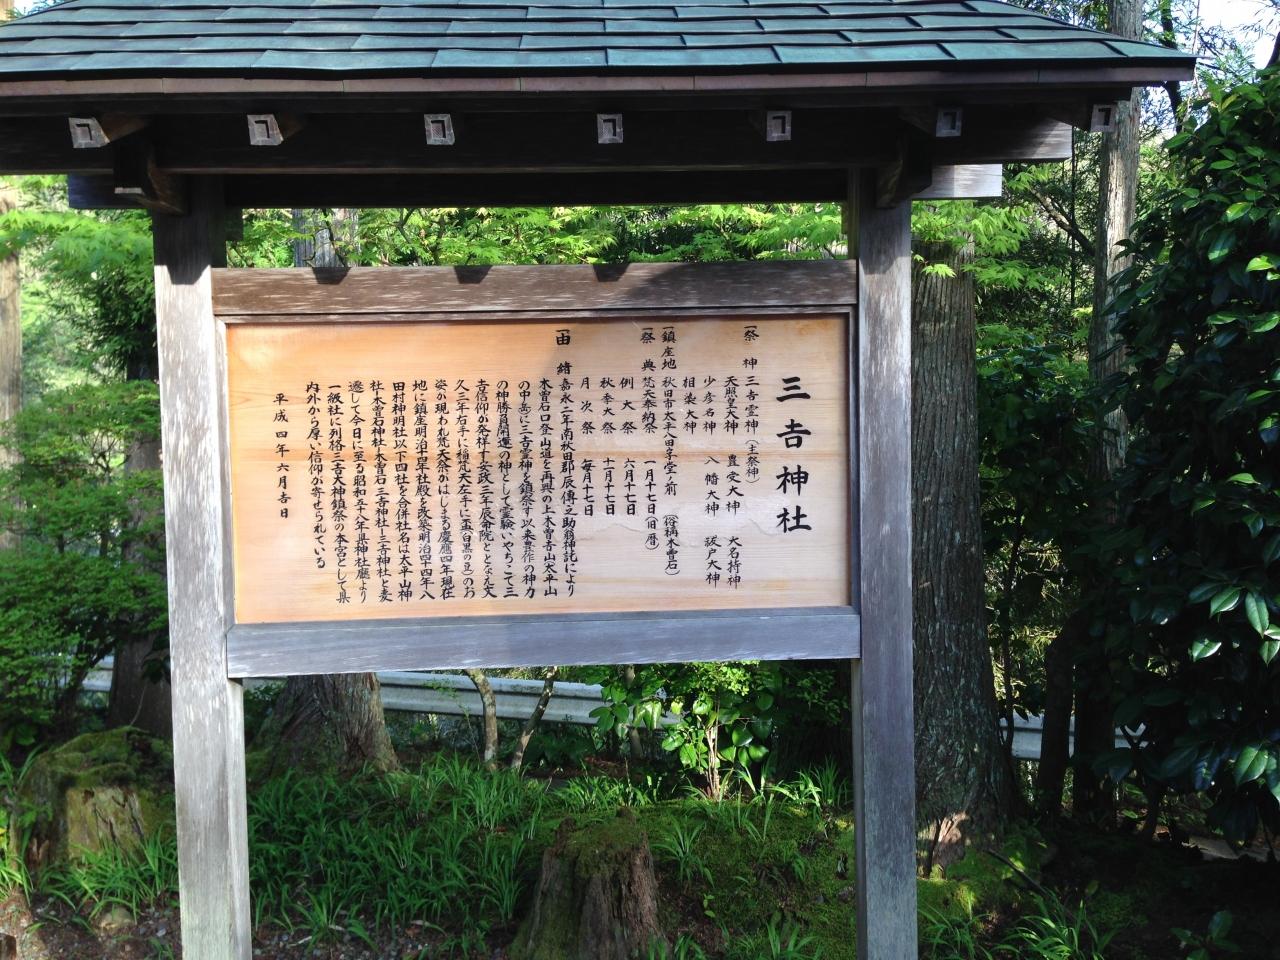 三吉神社
一祭神 三吉霊神（主祭神）
天照皇大神 豊受大神 大名持神
少彦名神 八幡大神 祓戸大神
相染大神
一鎮座地 秋田市太平八田字堂ノ前（俗稱木曽石）
一祭典 梵天奉納祭 一月十七日（旧暦）
例大祭 六月十七日
秋季大祭 十一月十七日
月次祭 毎月十七日
一由緒 嘉永二年南秋田郡辰傳之助翁神託により
木曽石口登山道を再興の上木曽𠮷山（太平山
の中岳に三吉霊神を鎮祭す以来豊作の神力
の神勝負開運の神として霊験いやちこて三
吉信仰が発祥す安政三年辰侖院ととなえ文
久三年右手に稲梵天左手に盃（白黒の豆）のお
姿が現われ梵天祭がはじまる慶應四年現在
地に鎮座明治十四年社殿を改築明治四十四年八
田村神明社以下四社を合併社名は太平山神
社・木曽石神社・木曽石三吉神社・三吉神社と変
遷して今日に至る昭和五十八年県神社廰より
一級社に列格三吉大神鎮祭の本宮として県
内外から厚い信仰が寄せられている
平成四年六月吉日